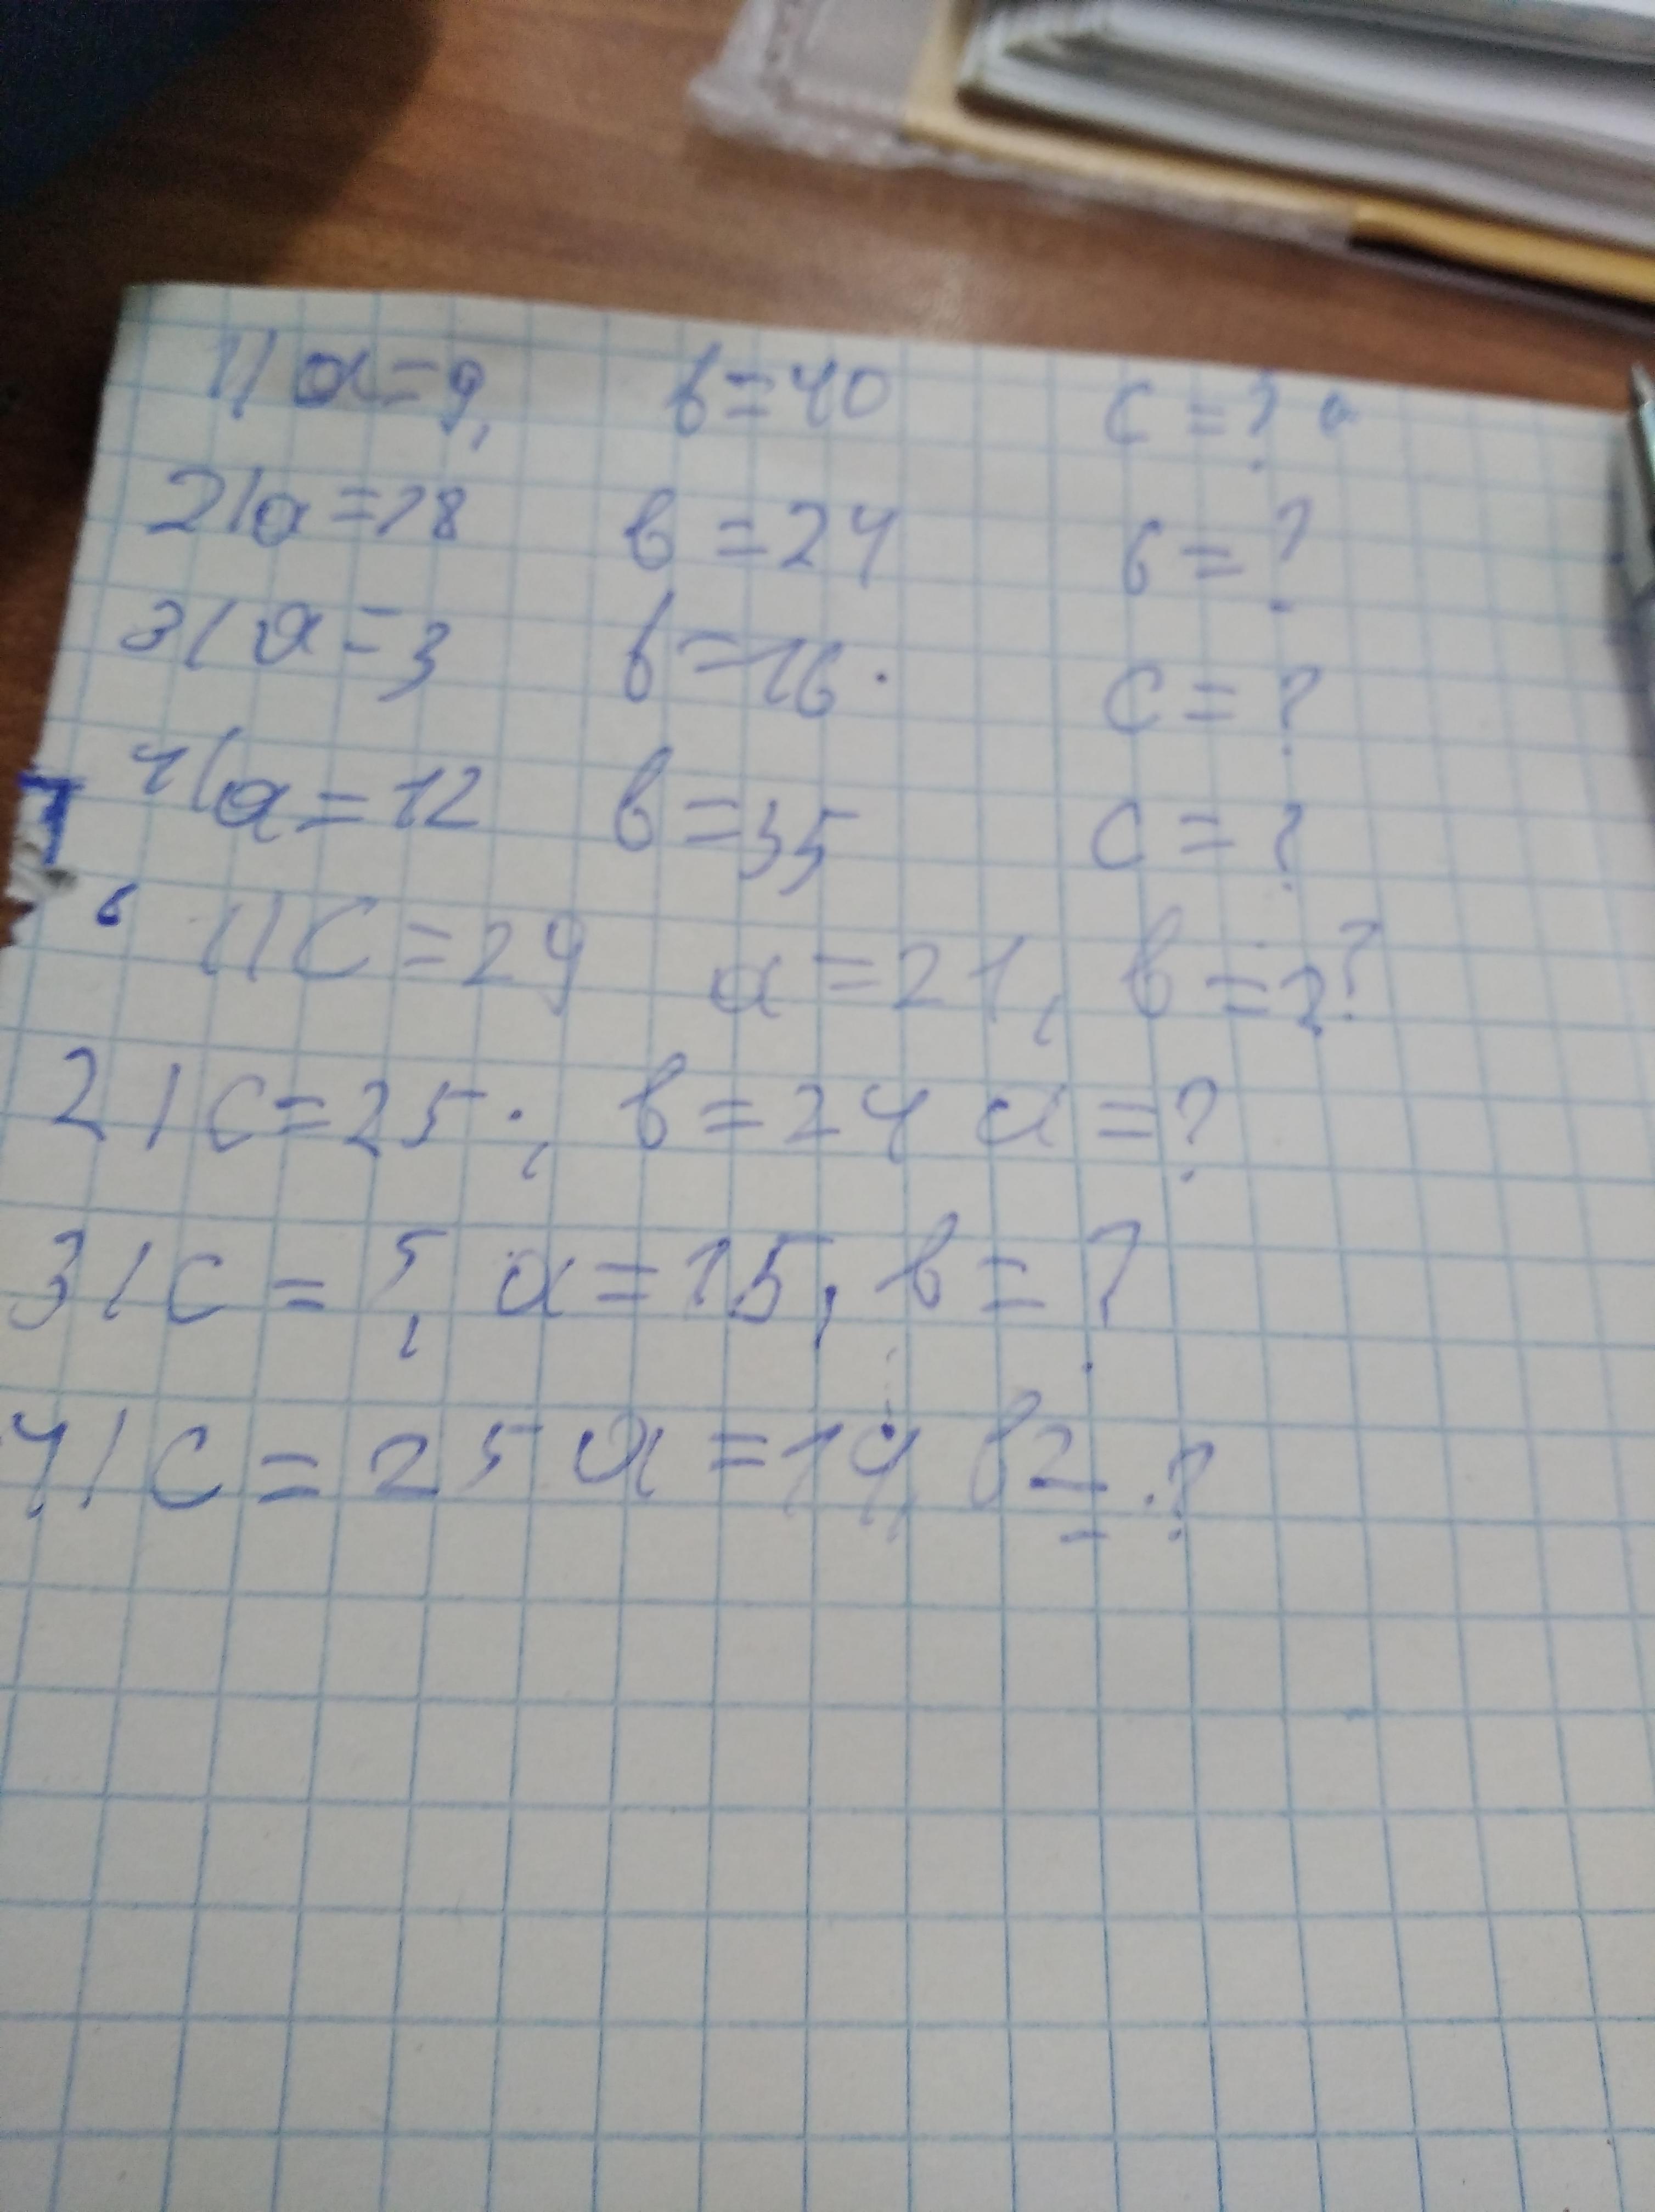 1) a=9, b=40 c=?
2) a=18 b=24 c=?
3) a=3 b=16. c=?
4) a=12 b=35 c=?
1) c=29 a=21, b=?
2) c=25; b=24 a=?
3) c=5, a=15, b=?
4) c=25 a=14, b=?